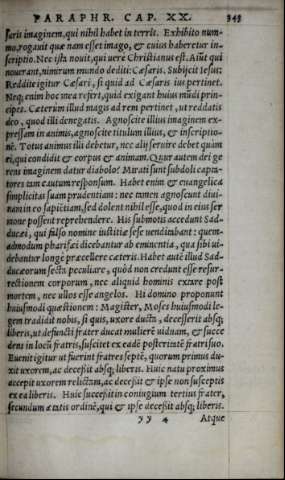 PARAPHR. CAP. XX. 343
saris imaginem, qui nihil habet in terris. Exhibito num-
mo, rogauit quæ nam esset imago, & cuius haberetur in-
scriptio. Nec ista nouit, qui uere Christianus est. Aiūt qui
nouerant, nimirum mundo dediti: Cæsaris. Subijcit Iesus:
Reddite igitur Cæsari, si quid ad Cæsaris ius pertinet.
Neq; enim hoc mea refert, quid exigant huius mūdi prin-
cipes. Cæterùm illud magis ad rem pertinet, ut reddatis
deo, quod illi denegatis. Agnoscite illius imaginem ex-
pressam in animis, agnoscite titulum illius, & inscriptio-
nē. Totus animus illi debetur, nec alij seruire debet quàm
ei, qui condidit & corpus & animam. Qur autem dei ge
rens imaginem datur diabolo? Mirati sunt subdoli capta-
tores tam cautum responsum. Habet enim & euangelica
simplicitas suam prudentiam: nec tamen agnoscunt diui-
nam in eo sapiētiam, sed dolent nihil esse, quod in eius ser
mone possent reprehendere. His submotis accedunt Sad-
ducæi, qui falso nomine iustitiæ sese uenditabant: quem-
admodum pharisæi dicebantur ab eminentia, qua sibi ui-
debantur longè præcellere cæteris. Habet autē illud Sad-
ducæorum secta peculiare, quòd non credunt esse resur-
rectionem corporum, nec aliquid hominis extare post
mortem, nec ullos esse angelos. Hi domino proponunt
huiusmodi quæstionem: Magister, Moses huiusmodi le-
gem tradidit nobis, si quis, uxore ducta, decesserit absq;
liberis, ut defuncti frater ducat mulierē uiduam, & succe
dens in locū fratris, suscitet ex eadē posteritatē fratri suo.
Euenit igitur ut fuerint fratres septē, quorum primus du-
xit uxorem, ac decessit absq; liberis. Huic natu proximus
accepit uxorem relictam, ac decessit & ipse non susceptis
ex ea liberis. Huic successit in coniugium tertius frater,
secundum ætatis ordinē, qui & ipse decessit absq; liberis.
yy 4 Atque